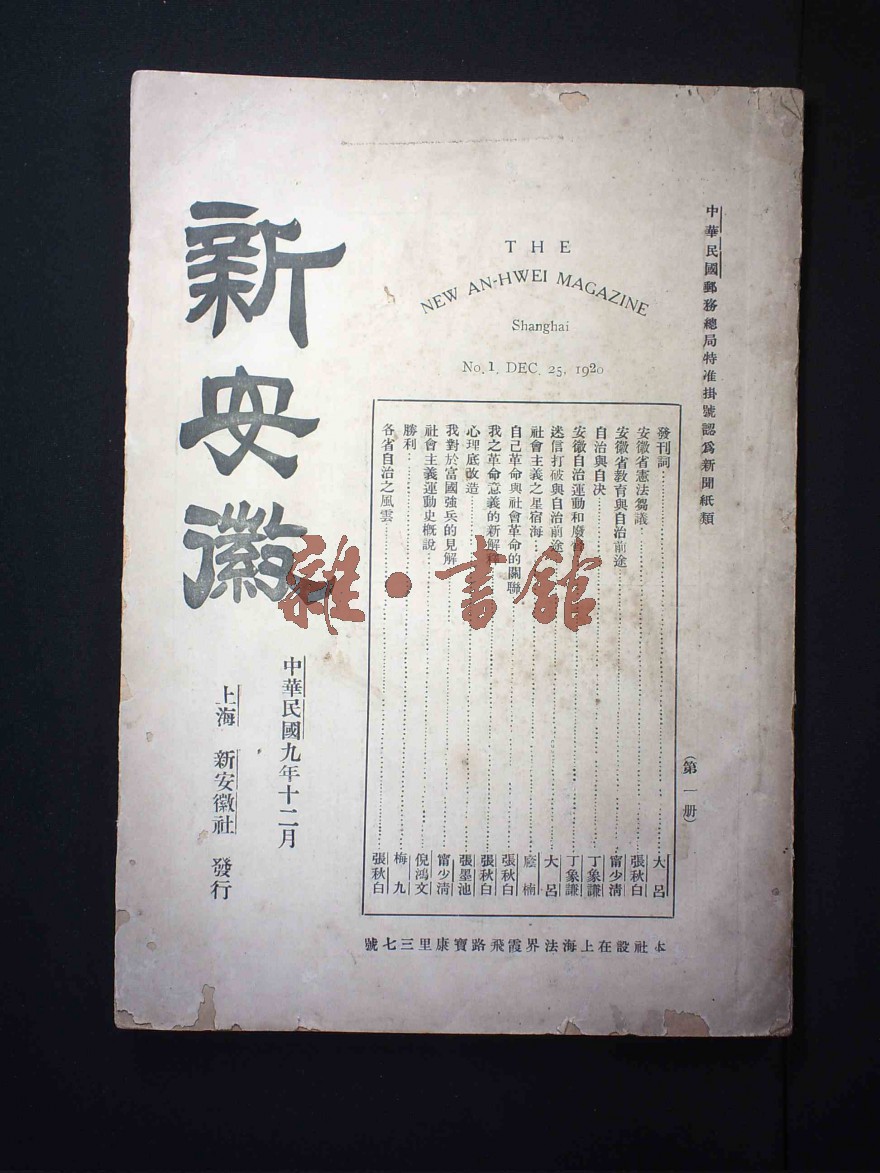 中華民國郵務總局特准掛號認爲新聞紙類
(第一册)
THE
NEW AN-HWEI MAGAZINE
Shanghai
No. 1, DEC. 25, 1920
發刊詞 大呂
安徽省憲法芻議 張秋白
安徽省教育與自治前途 甯少清
自治與自決 丁象謙
安徽自治運動和廢督 丁象謙
迷信打破與自治前途 大呂
社會主義之星宿海 楠
自己革命與社會革命的關聯 張秋白
我之革命意義的新解釋 張秋白
心理底改造 張墨池
我對於富國強兵的見解 甯少清
社會主義運動史概說 倪鴻文
勝利 梅九
各省自治之風雲 張秋白
本社設在上海法界霞飛路寶康里三七號
新安徽
中華民國九年十二月
上海 新安徽社 發行
雜·書館